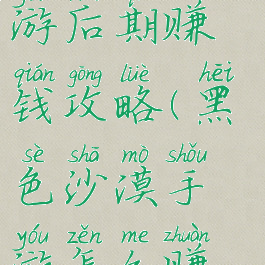 游后期赚
qián gōng lüè hēi
钱攻略(黑
sè shā mò shǒu
色沙漠手
yóu zěn me zhuàn